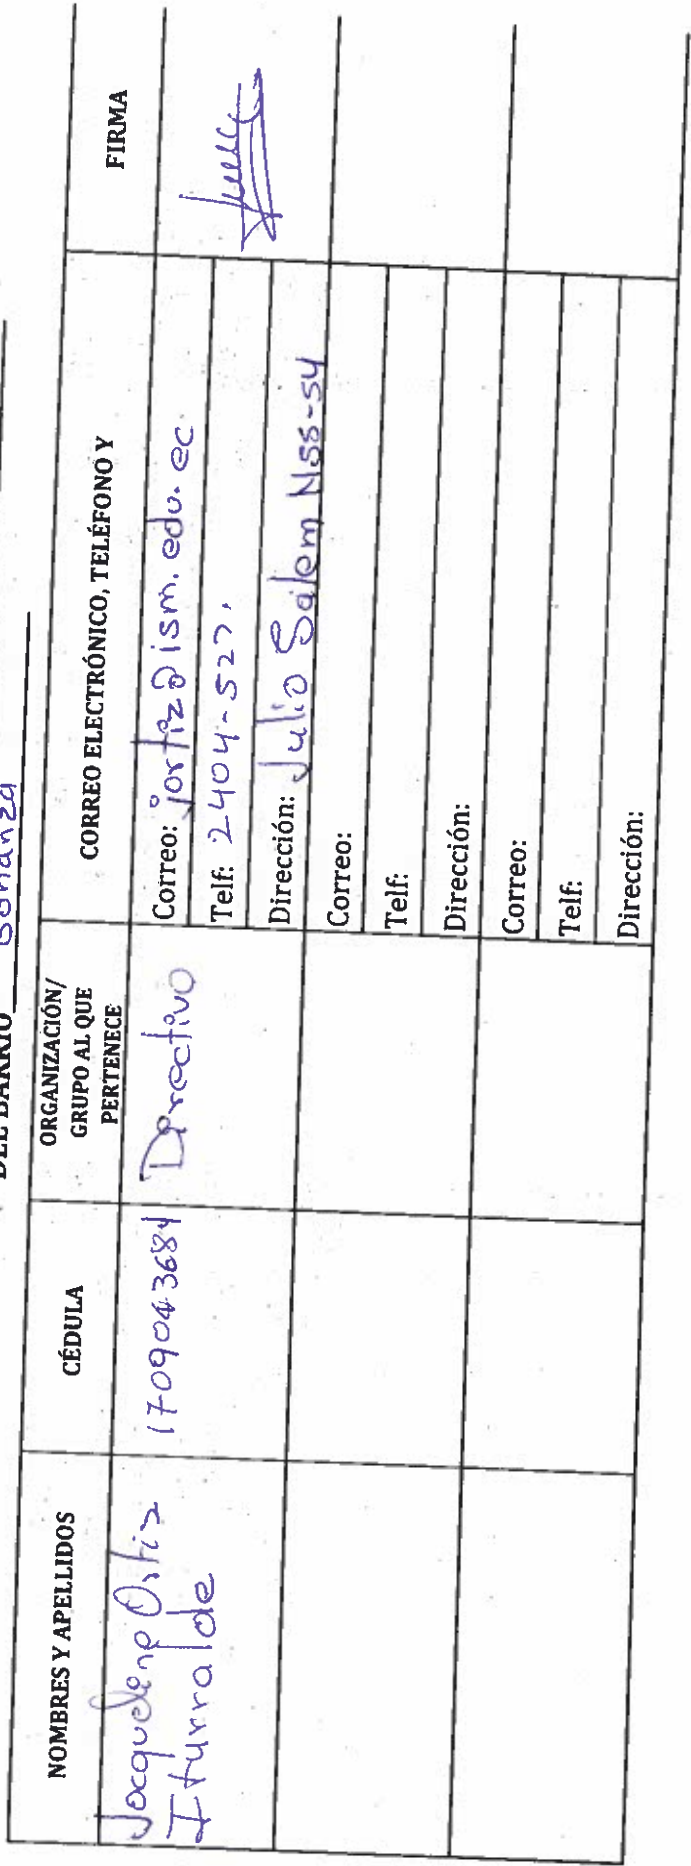 DEL BARRIO Bonanza
NOMBRES Y APELLIDOS
CÉDULA
ORGANIZACIÓN/
GRUPO AL QUE
PERTENECE
CORREO ELECTRÓNICO, TELÉFONO Y
FIRMA
Jacqueline Ortiz
Iturralde
1709043684
Directivo
Correo: jortiz@ism.edu.ec
Telf: 2404-527.
Dirección: Julio Salem N58-54
Correo:
Telf:
Dirección:
Correo:
Telf:
Dirección: